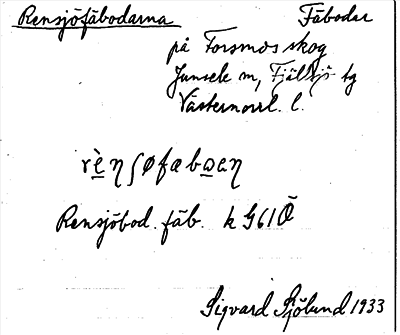 Rensjöfäbodarna Fäbodar
på Forsmos skog
Junsele m, Fjällsjö tg
Västernorrl. l.
rè̱ŋʃøfæbo̱aŋ
Rensjöbod. fäb. k G61Ö
Sigvard Sjölund 1933